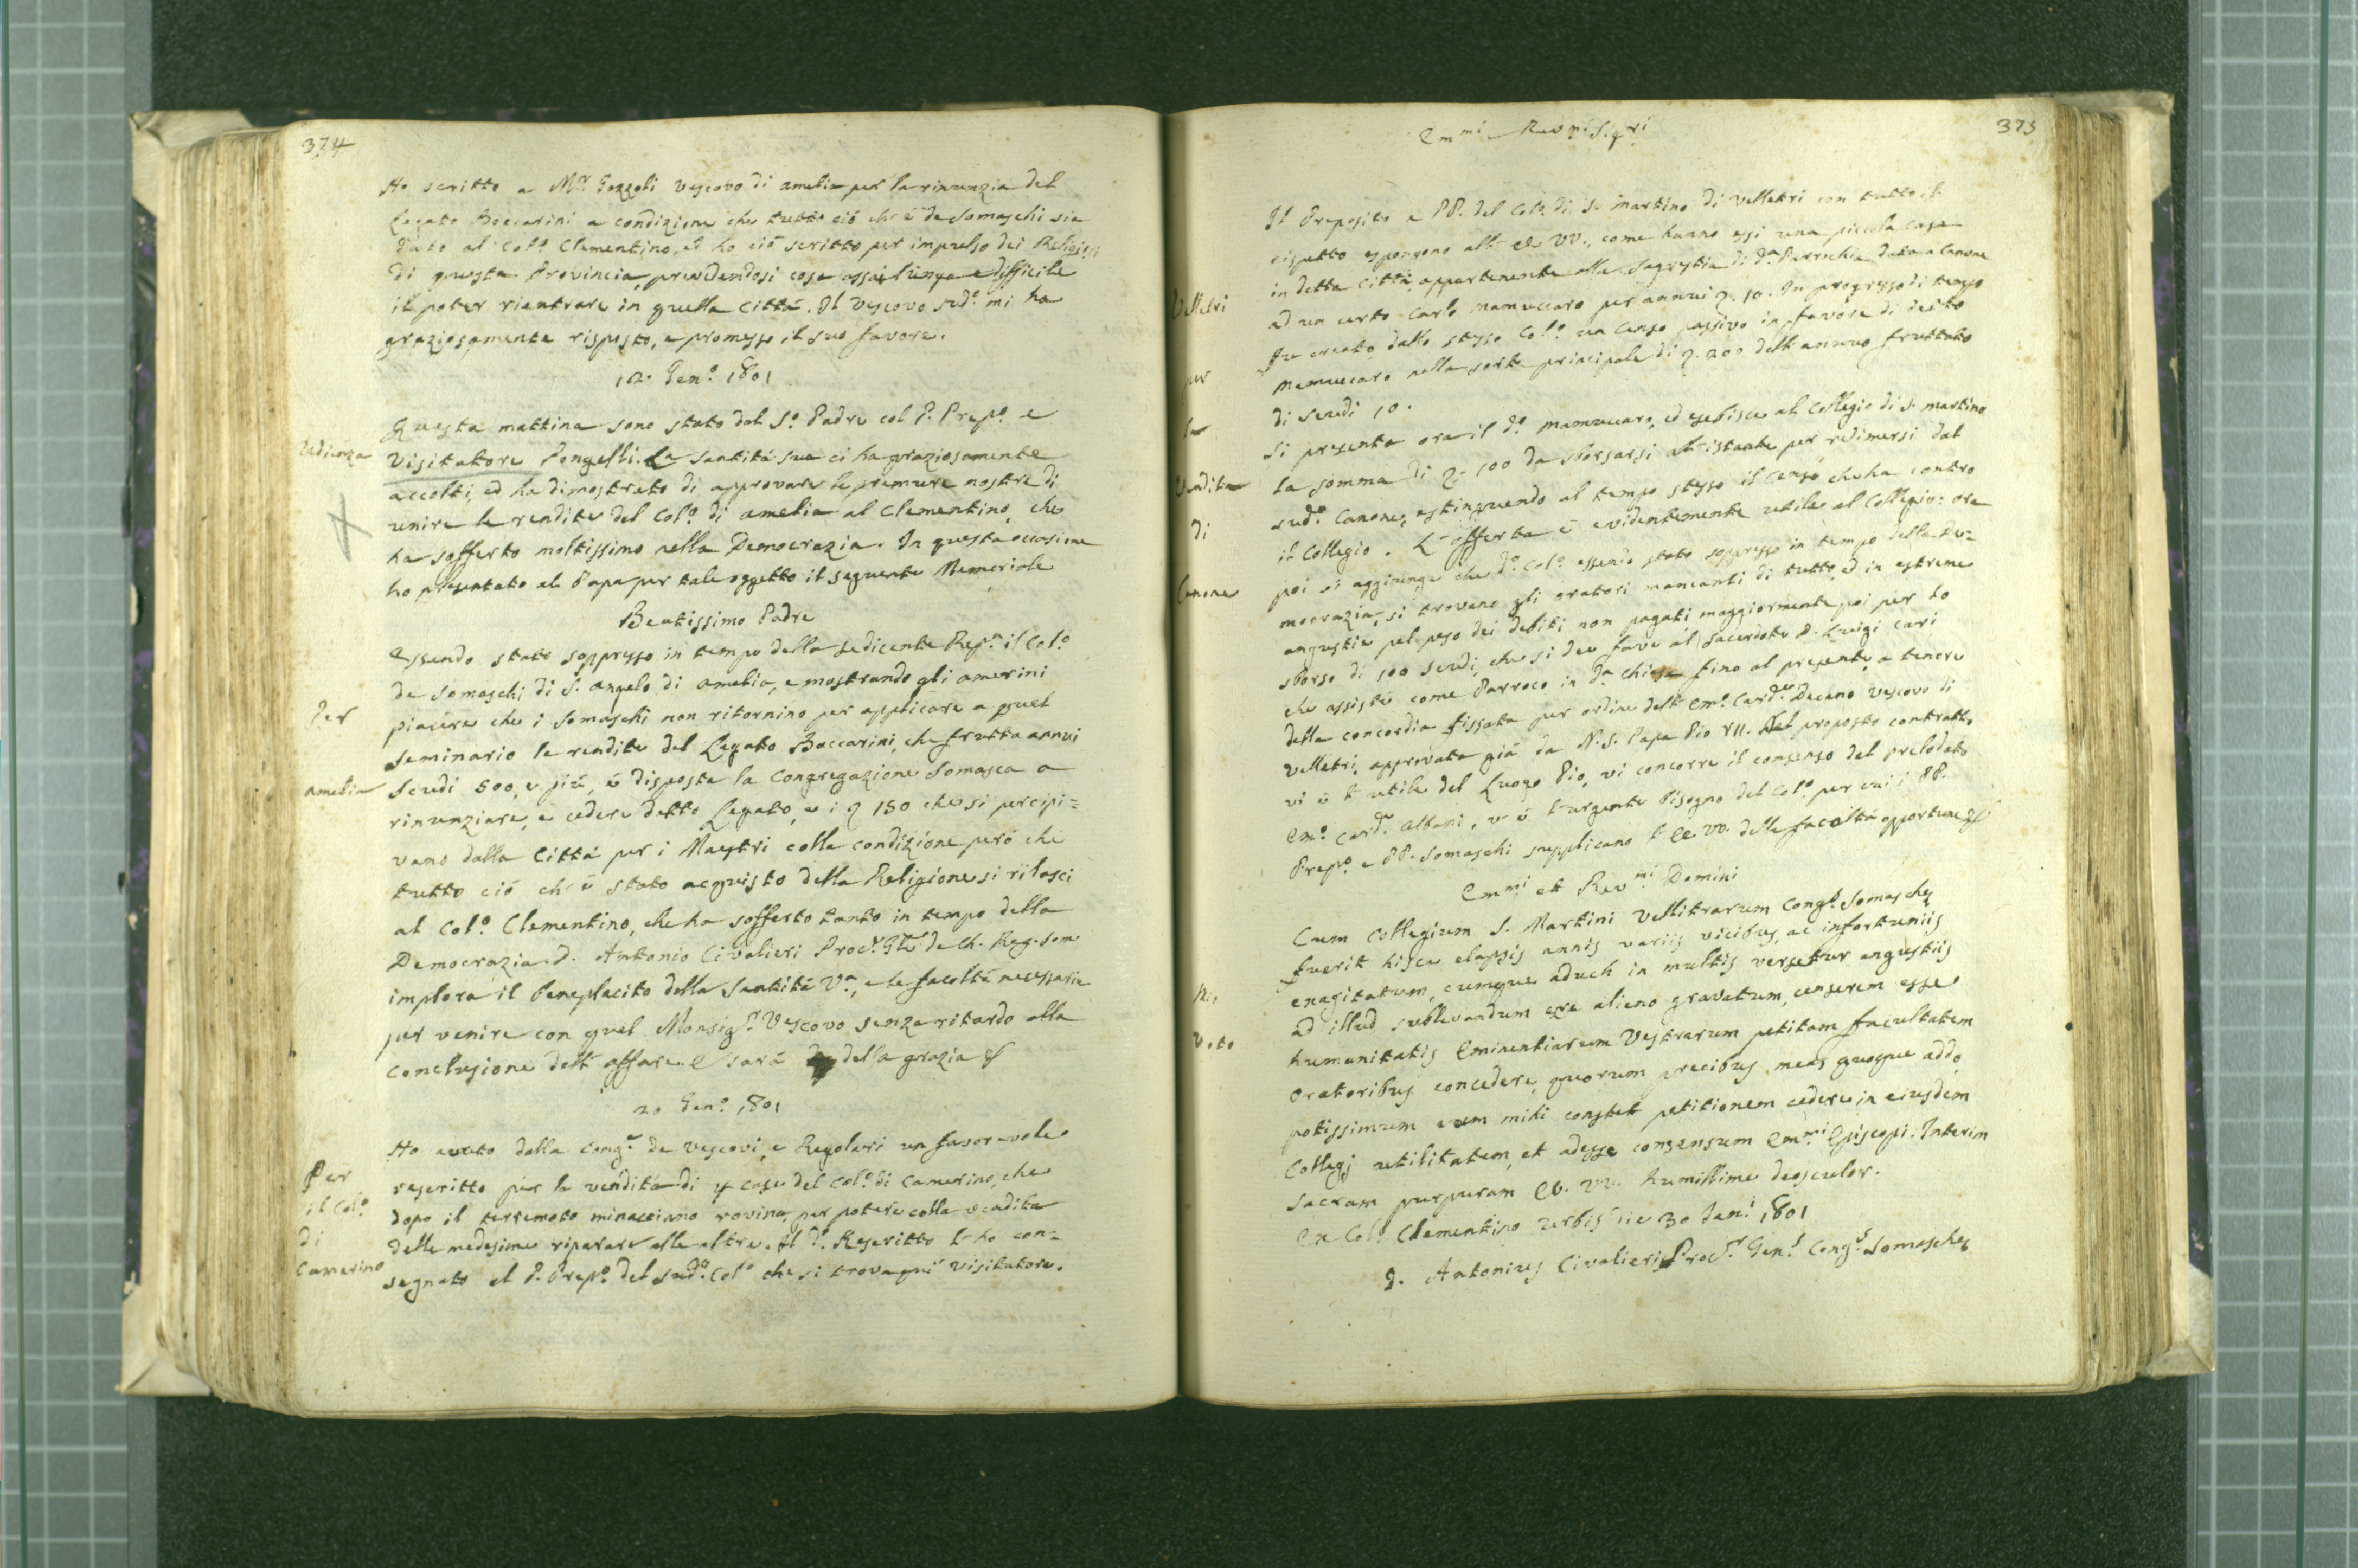 374
Ho scritto a Mr. Gozzoli Vescovo di Amelia per la rinunzia del
Legato Boccarini a condizione che tutto ciò ch'è de Somaschi sia
dato al Colo. Clementino, ed ho ciò scritto per impulso dei Religiosi
di questa Provincia, prevedendosi cosa assai lunga e difficile
il poter rientrare in quella Città. Il Vescovo sudo. mi ha
graziosamente risposto, e promesso il suo favore.
12. Geno. 1801
Udienza
Questa mattina sono stato dal So. Padre col P. Prepo. e
Visitatore Pongelli. La Santità sua ci ha graziosamente
accolti, ed ha dimostrato di approvare le premure nostre di
unire le rendite del Colo. di Amelia al Clementino, che
ha sofferto moltissimo nella Democrazia. In questa occasione
ho presentato al Papa per tale oggetto il seguente Memoriale
Beatissimo Padre
Per
Amelia
Essendo stato soppresso in tempo della sedicente Repa. il Colo.
de Somaschi di S. Angelo di Amelia, e mostrando gli Amerini
piacere che i Somaschi non ritornino per applicare a quel
Seminario le rendite del Legato Boccarini, che frutta annui
Scudi 500, e più, è disposta la Congregazione Somasca a
rinunziare, e cedere detto Legato, e i 150 che si percipi=
vano dalla Città per i Maestri colla condizione però che
tutto ciò ch'è stato acquisto della Religione si rilasci
al Colo. Clementino, che ha sofferto tanto in tempo della
Democrazia. D. Antonio Civalieri Procr. Gle. de Ch. Reg. Som.
implora il beneplacito della Santità Va., e le facoltà necessarie
per venire con quel Monsigr. Vescovo senza ritardo alla
conclusione dell'affare. E sarà della grazia &
20 Geno. 1801
Per
il Colo.
di
Camerino
Ho avuto dalla Conge. de Vescovi, e Regolari un favorevole
rescritto per la vendita di 4 case del Colo. di Camerino, che
dopo il terremoto minacciano rovina, per potere colla vendita
delle medesime riparare alle altre. Il do. Rescritto l'ho con=
segnato al P. Prepo. del sudo. Colo. che si trova qui Visitatore.
375
Emmi. e Revmi. Sigri.
Velletri
per
la
Vendita
di
Canone
Il Preposito e PP. del Colo. di S. Martino di Velletri con tutto il
rispetto espongono all'EE. VV., come hanno essi una piccola Casa
in detta Città appartenente alla Sagrestia di da. Parrochia data a Canone
ad un certo Carlo Mamuccaro per annui 10. In progresso di tempo
fu creato dallo stesso Colo. un Censo passivo in favore di detto
Mamuccaro nella sorte principale di 200 dell'annuo fruttato
di Scudi 10.
Si presenta ora il do. Mamuccaro, ed esebisce al Collegio di S. Martino
la somma di 100 da sborsarsi all'istante per redimersi dal
sudo. Canone, estinguendo al tempo stesso il Censo che ha contro
il Collegio. L'offerta è evidentemente utile al Collegio: ora
poi si aggiunge che do. Colo. essendo stato soppresso in tempo della De=
mocrazia, si trovano gli oratori mancanti di tutto, ed in estreme
angustie pel peso dei debiti non pagati maggiormente poi per lo
sborso di 100 Scudi, che si dee fare al Sacerdote D. Luigi Cari
che assistè come Parroco in da. Chiesa fino al presente, a tenore
della concordia fissata per ordine dell'Emo. Carde. Decano Vescovo di
Velletri, approvata già da N. S. Papa Pio VII. Nel proposto contratto
vi è l'utile del Luogo Pio, vi concorre il consenso del prelodato
Emo. Carde. Albani, v'è l'urgente bisogno del Colo. per cui i PP.
Prepo. e PP. Somaschi supplicano l'EE. VV. delle facoltà opportune &
Emmi. et Revmi. Domini
Voto
Cum Collegium S. Martini Vellitrarum Congis. Somaschę
fuerit hisce elapsis annis variis vicibus, ac infortuniis
exagitatum, cumque aduch in multis versetur angustiis
ad illud sublevandum ęre alieno gravatum, censerem esse
humanitatis Eminentiarum Vestrarum petitam facultatem
Oratoribus concedere, quorum precibus meas quoque addo
potissimum cum mihi constet petitionem cedere in eiusdem
Collegj utilitatem, et adesse consensum Emmi. Episcopi. Interim
Sacram purpuram EE. VV. humillime deosculor.
Ex Colo. Clementino Urbis die 30 Jani. 1801
D. Antonius Civalieri Procr. Genl. Congis. Somaschę